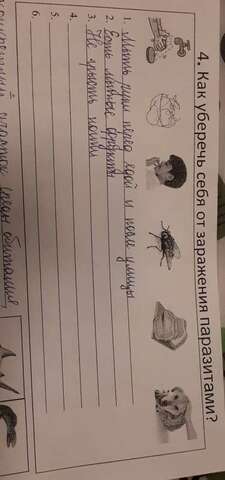 4. Как уберечь себя от заражения паразитами?
1. Мыть руки перед едой и после улицы
2. Есть мытые фрукты
3. Не грызть ногти
4.
5.
6.
среды обитания